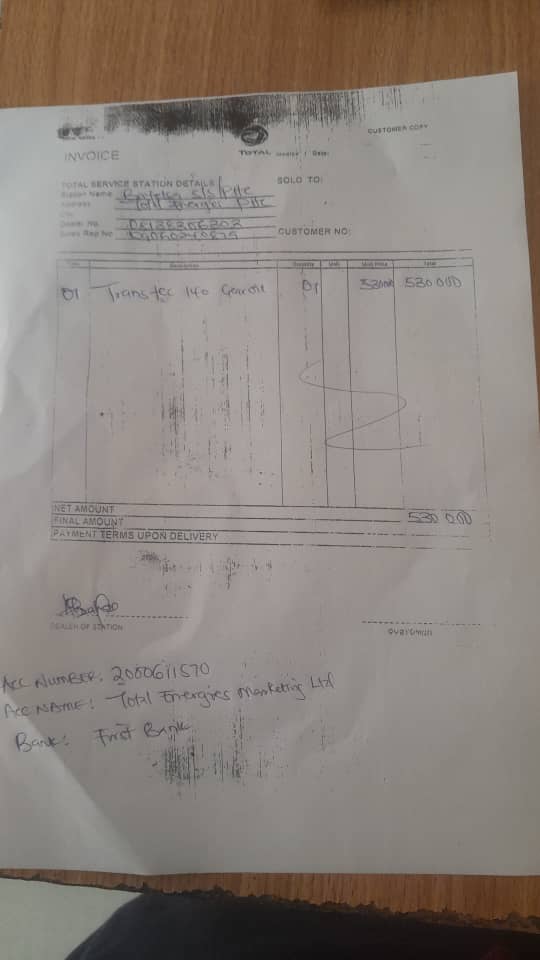 CUSTOMER COPY
INVOICE
TOTAL Invoice / Date:
TOTAL SERVICE STATION DETAILS
SOLD TO:
Station Name S/S PHC
Address Total Energies PHC
Dealer No. 08138306303
Sales Rep No
CUSTOMER NO:
Description Quantity Unit Unit Price Total
01 Transtec 140 Gear Oil 01 530000 530 000
NET AMOUNT
FINAL AMOUNT 530 000
PAYMENT TERMS UPON DELIVERY
DEALER OF STATION
ACC NUMBER: 2000611570
ACC NAME: Total Energies Marketing Ltd
Bank: First Bank